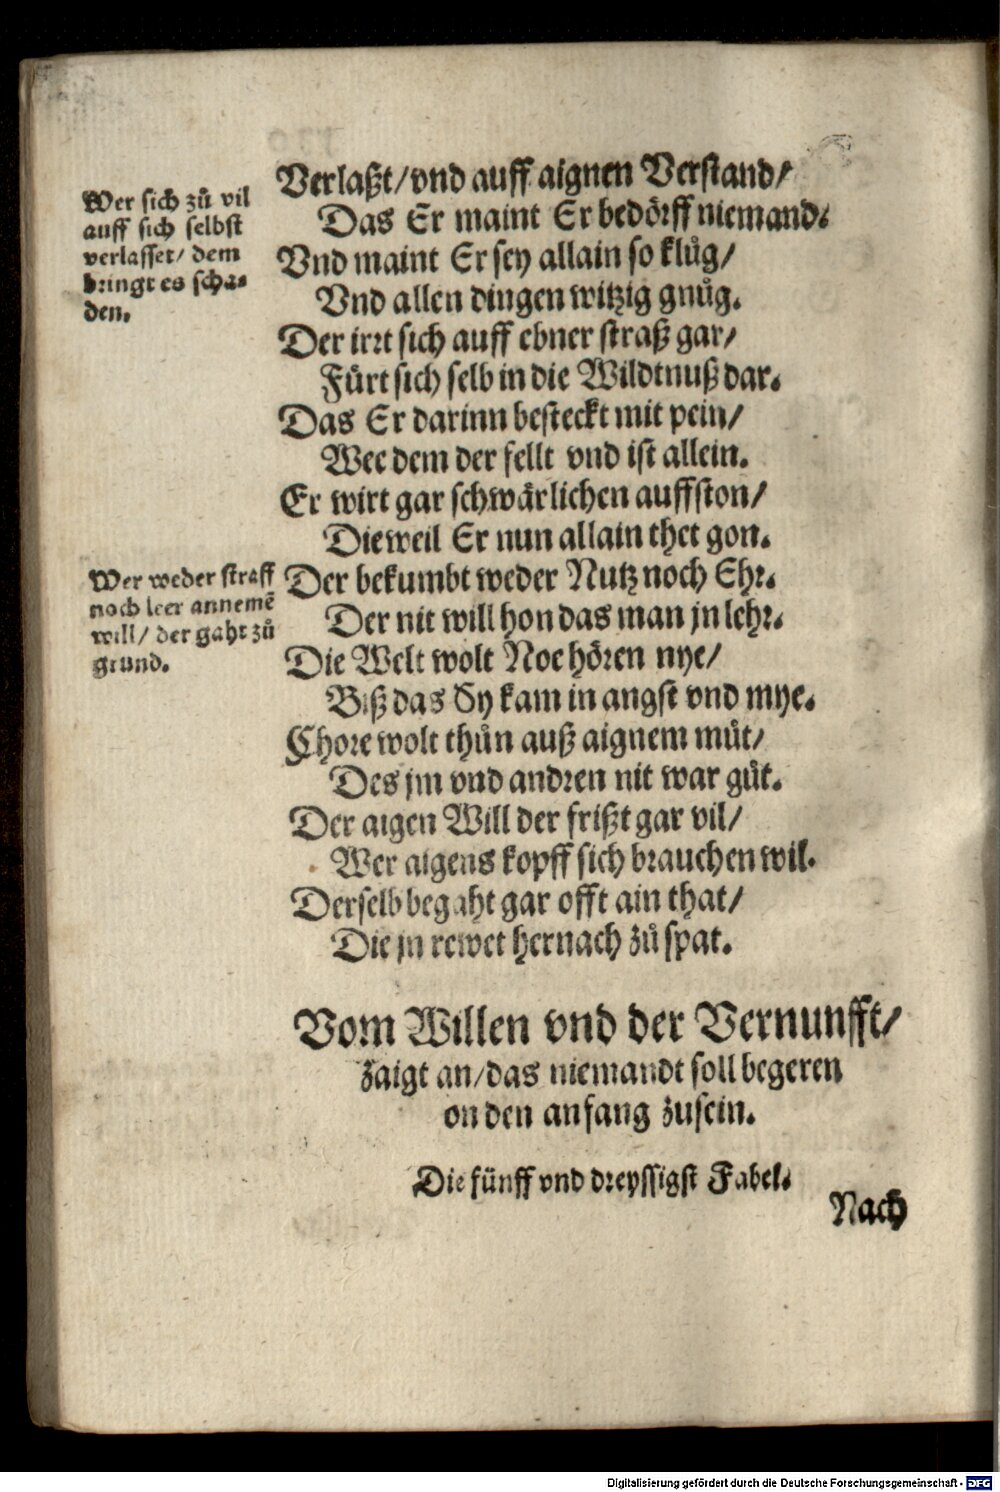 Wer sich zů vil
auff sich selbst
verlasset/ dem
bringt es scha-
den.
Verlaßt/ vnd auff aignen Verstand/
Das Er maint Er bedörff niemand.
Vnd maint Er sey allain so klůg/
Vnd allen dingen witzig gnůg.
Der irrt sich auff ebner straß gar/
Fürt sich selb in die Wildtnuß dar.
Das Er darinn besteckt mit pein/
Wee dem der fellt vnd ist allein.
Er wirt gar schwärlichen auffston/
Dieweil Er nun allain thet gon.
Wer weder straff
noch leer annemẽ
will/ der gaht zů
grund.
Der bekumbt weder Nutz noch Ehr.
Der nit will hon das man jn lehr.
Die Welt wolt Noe hören nye/
Biß das Sy kam in angst vnd mye.
Chore wolt thůn auß aignem můt/
Des jm vnd andren nit war gůt.
Der aigen Will der frißt gar vil/
Wer aigens kopff sich brauchen wil.
Derselb begaht gar offt ain that/
Die jn rewet hernach zů spat.
Vom Willen vnd der Vernunfft/
zaigt an/ das niemandt soll begeren
on den anfang zusein.
Die fünff vnd dreyssigst Fabel.
Nach
Digitalisierung gefördert durch die Deutsche Forschungsgemeinschaft - DFG